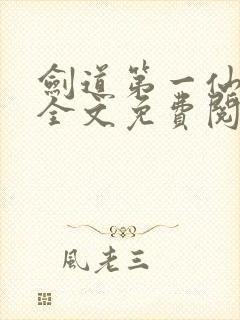 劍道第一仙
全文免費閱
風老三